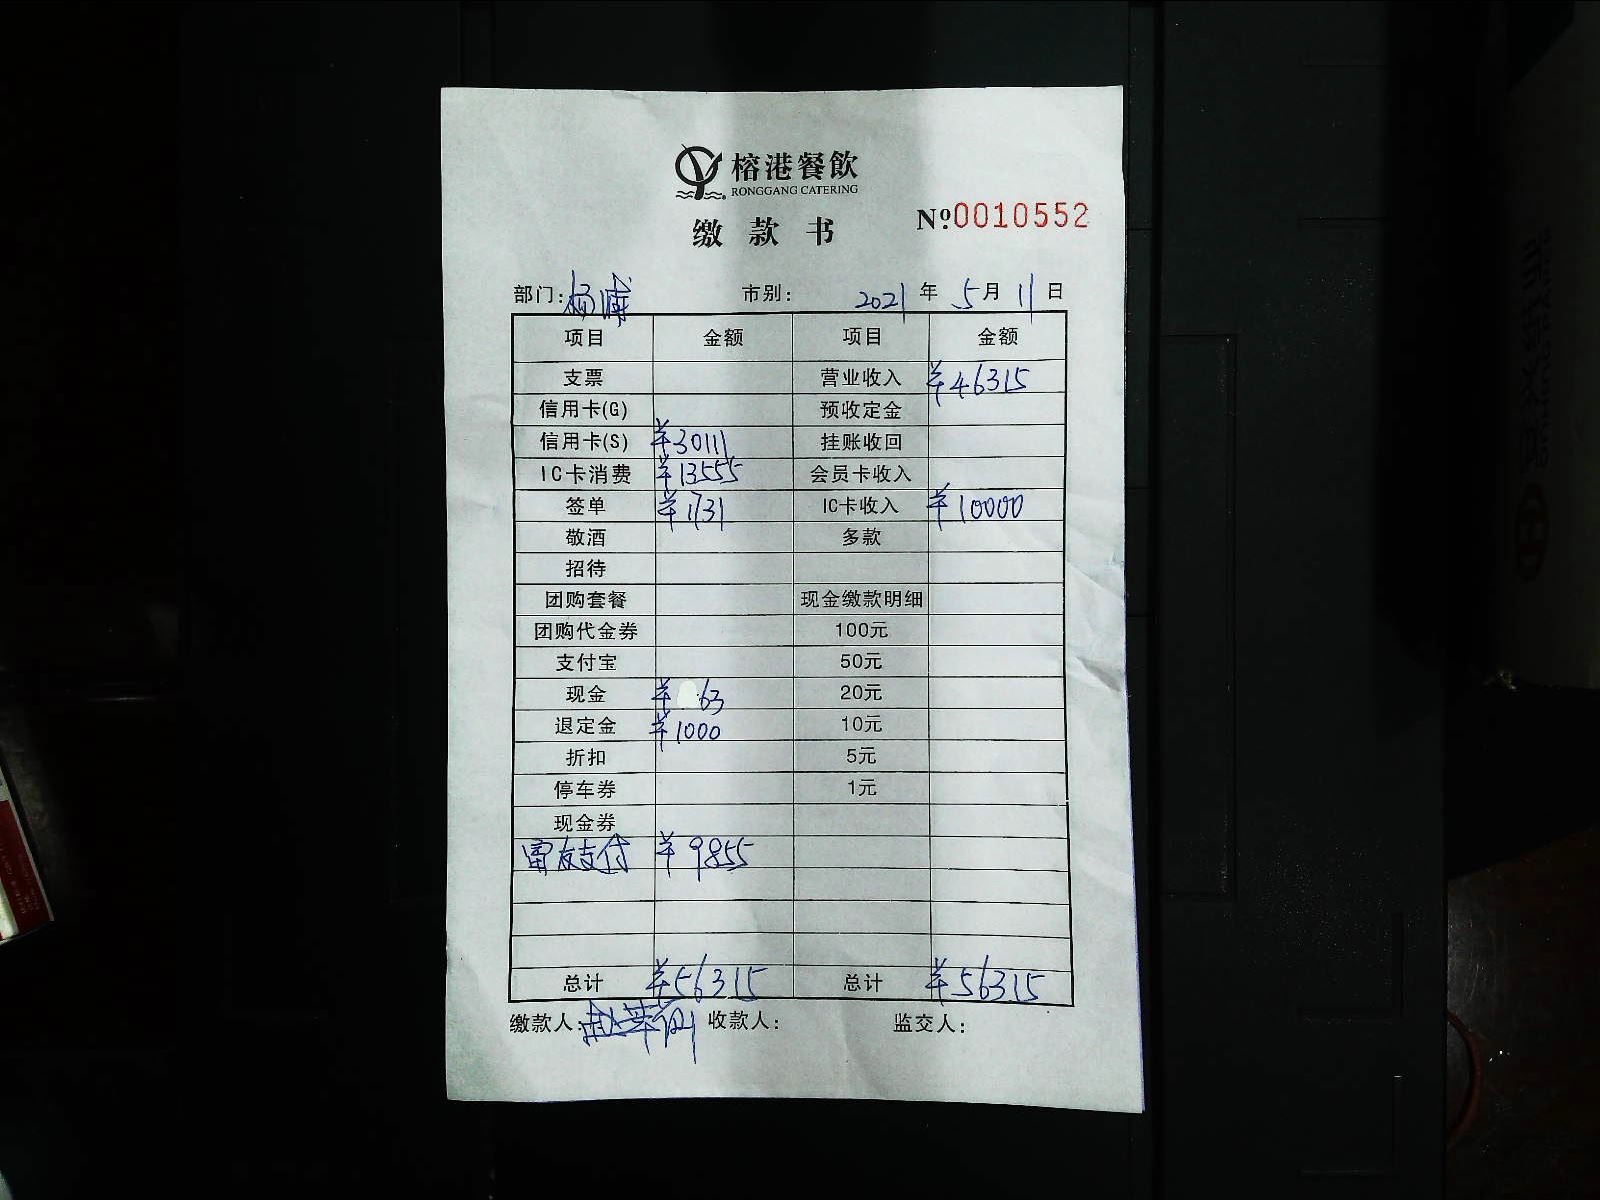 榕港餐飲
RONGGANG CATERING
缴款书 Nº.0010552
部门: 杨 市别: 2021 年 5 月 11 日
项目 金额 项目 金额
支票 营业收入 ¥46315
信用卡(G) 预收定金
信用卡(S) ¥30111 挂账收回
IC卡消费 ¥13555 会员卡收入
签单 ¥1731 IC卡收入 ¥10000
敬酒 多款
招待
团购套餐 现金缴款明细
团购代金券 100元
支付宝 50元
现金 ¥ 63 20元
退定金 ¥1000 10元
折扣 5元
停车券 1元
现金券
雷友支付 ¥9855
总计 ¥56315 总计 ¥56315
缴款人: 收款人: 监交人: